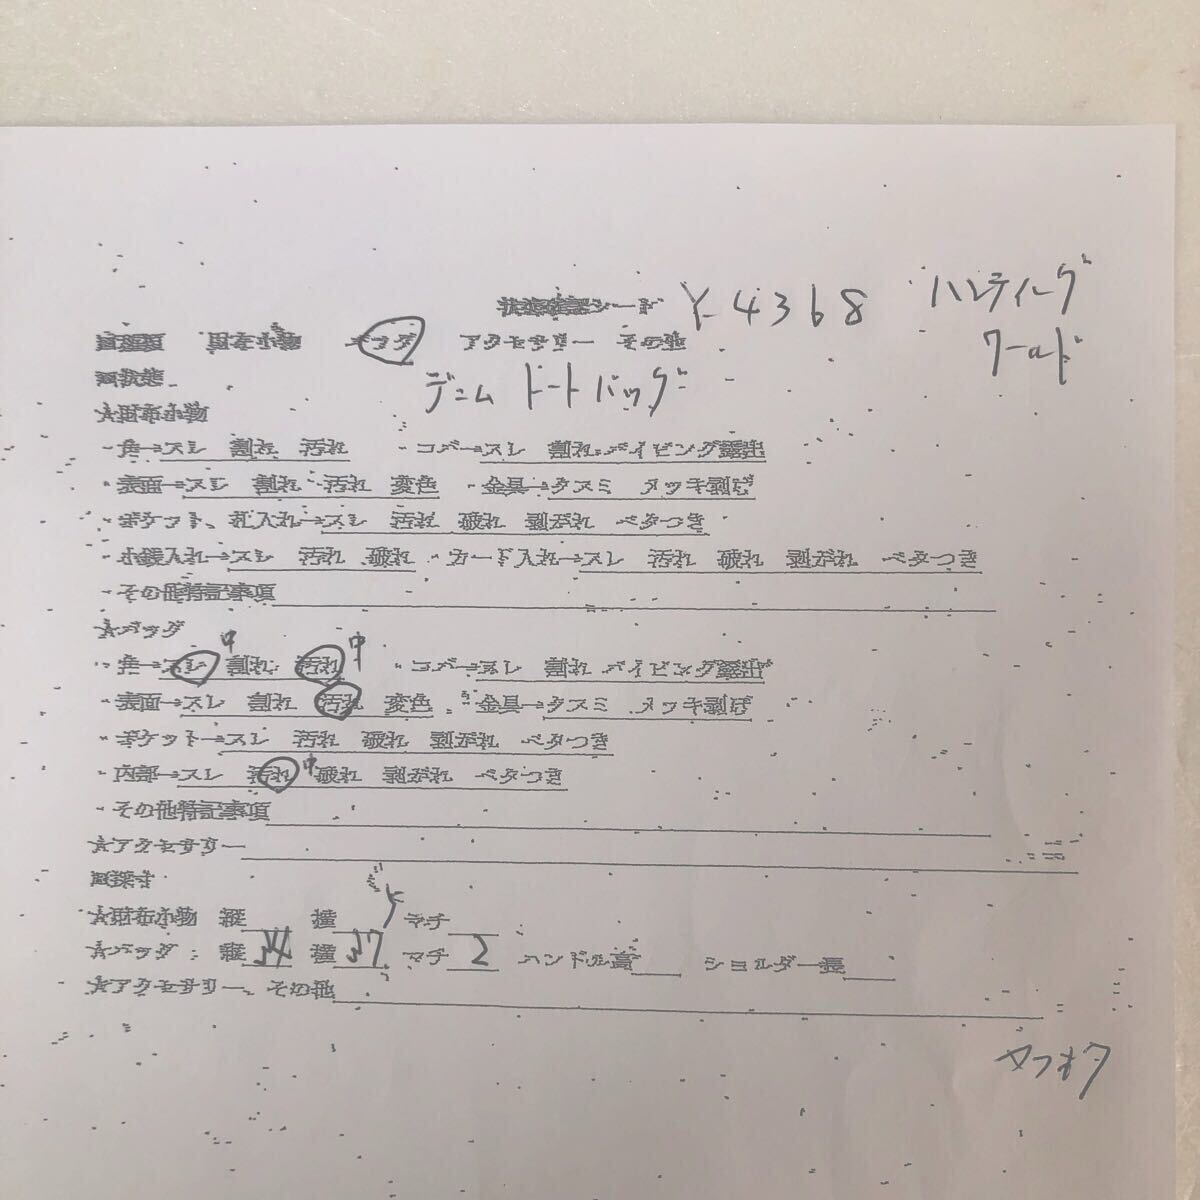 状態確認シート Y-4368 ハンティング
ワールド
財布小物 バッグ アクセサリー その他
■状態 デニム トートバッグ
★財布小物
・角→スレ 割れ 汚れ ・コバ→スレ 割れ パイピング露出
・表面→スレ 割れ 汚れ 変色 ・金具→クスミ メッキ剥げ
・ポケット、札入れ→スレ 汚れ 破れ 剥がれ ベタつき
・小銭入れ→スレ 汚れ 破れ ・カード入れ→スレ 汚れ 破れ 剥がれ ベタつき
・その他特記事項
★バッグ
・角→スレ 中 割れ 汚れ 中 ・コバ→スレ 割れ パイピング露出
・表面→スレ 割れ 汚れ 変色 ・金具→クスミ メッキ剥げ
・ポケット→スレ 汚れ 破れ 剥がれ ベタつき
・内部→スレ 汚れ 中 破れ 剥がれ ベタつき
・その他特記事項
★アクセサリー
■採寸
★財布小物 縦 横 マチ
★バッグ 縦 34 横 37 マチ 2 ハンドル高 ショルダー長
★アクセサリー、その他
ヤフオク